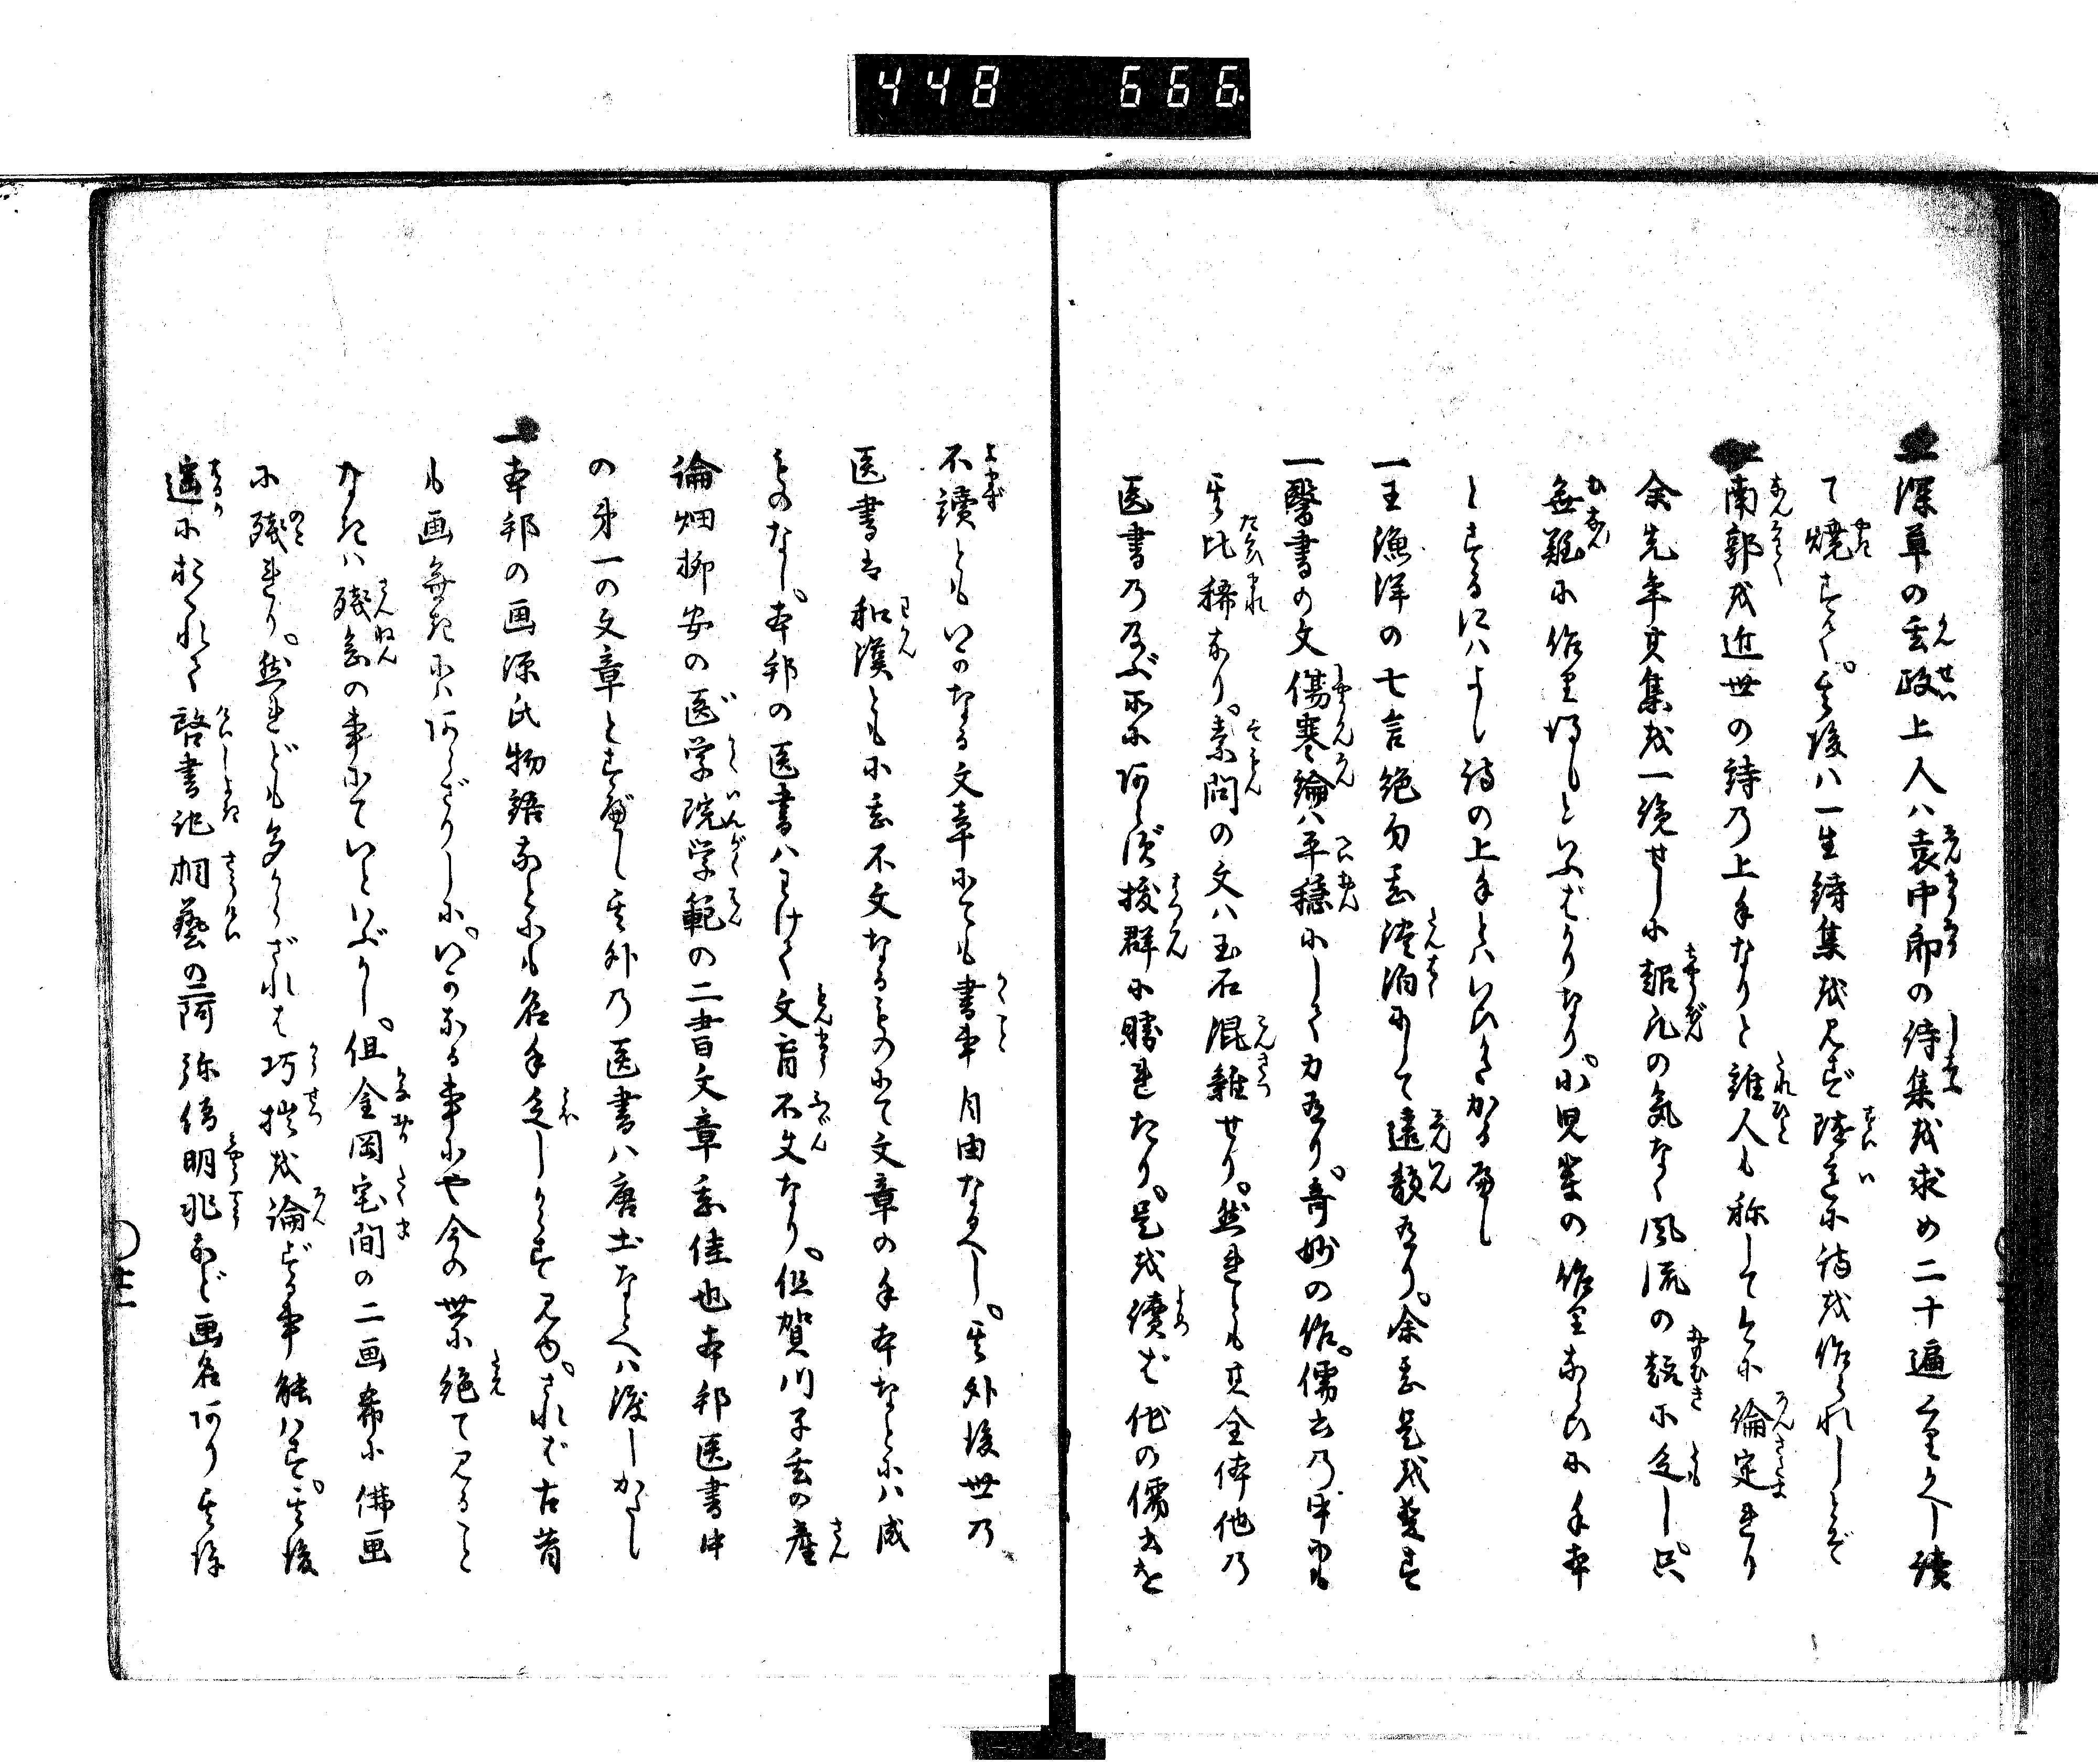 448 666
一深草の玄政上人ハ袁中郎の詩集を求め二十遍くりかへし読
て焼すて。其後ハ一生詩集を見ず隨意に詩を作られしとぞ
一南郭を近世の詩の上手なりと誰人も称してともに論定せり
余先年其集を一覧せしに超凡の気なく風流の趣に乏し。只
無難に作り得しといふばかりなり。小児輩の作りならひに手本
とするにハよし詩の上手とハいひかたかるべし
一王漁洋の七言絶句甚淡泊にして遠韻有り。余甚是を愛す
一醫書の文傷寒論ハ平穏にして力有り。奇妙の作。儒士の中にも
其比稀なり。素問の文ハ玉石混雑せり。然れども其全体他の
医書の及ぶ所にあらず抜群に勝れたり。是を讀ば他の儒士を
不讀ともいかなる文章にても書事自由なるべし。其外後世の
医書は和漢ともに甚不文なるものにて文章の手本なとにハ成
ものなし。本邦の医書ハわけて文盲不文なり。但賀川子玄の産
論畑柳安の医学院学範の二書文章甚佳也本邦医書中
の第一の文章とすべし其外の医書ハ唐土などへハ渡しがたし
一本邦の画源氏物語なとにも名手乏しからす見ゆ。されば古昔
も画無きにハあらざりしに。いかなる事にや今の世に絶て見ること
なきハ残念の事にていといぶかし。但金岡宅間の二画希に佛画
に残れり。然れども多からざれは巧拙を論ずる事能ハす。其後
遥におくれて啓書記相藝の二阿弥僧明兆など画名あり其後